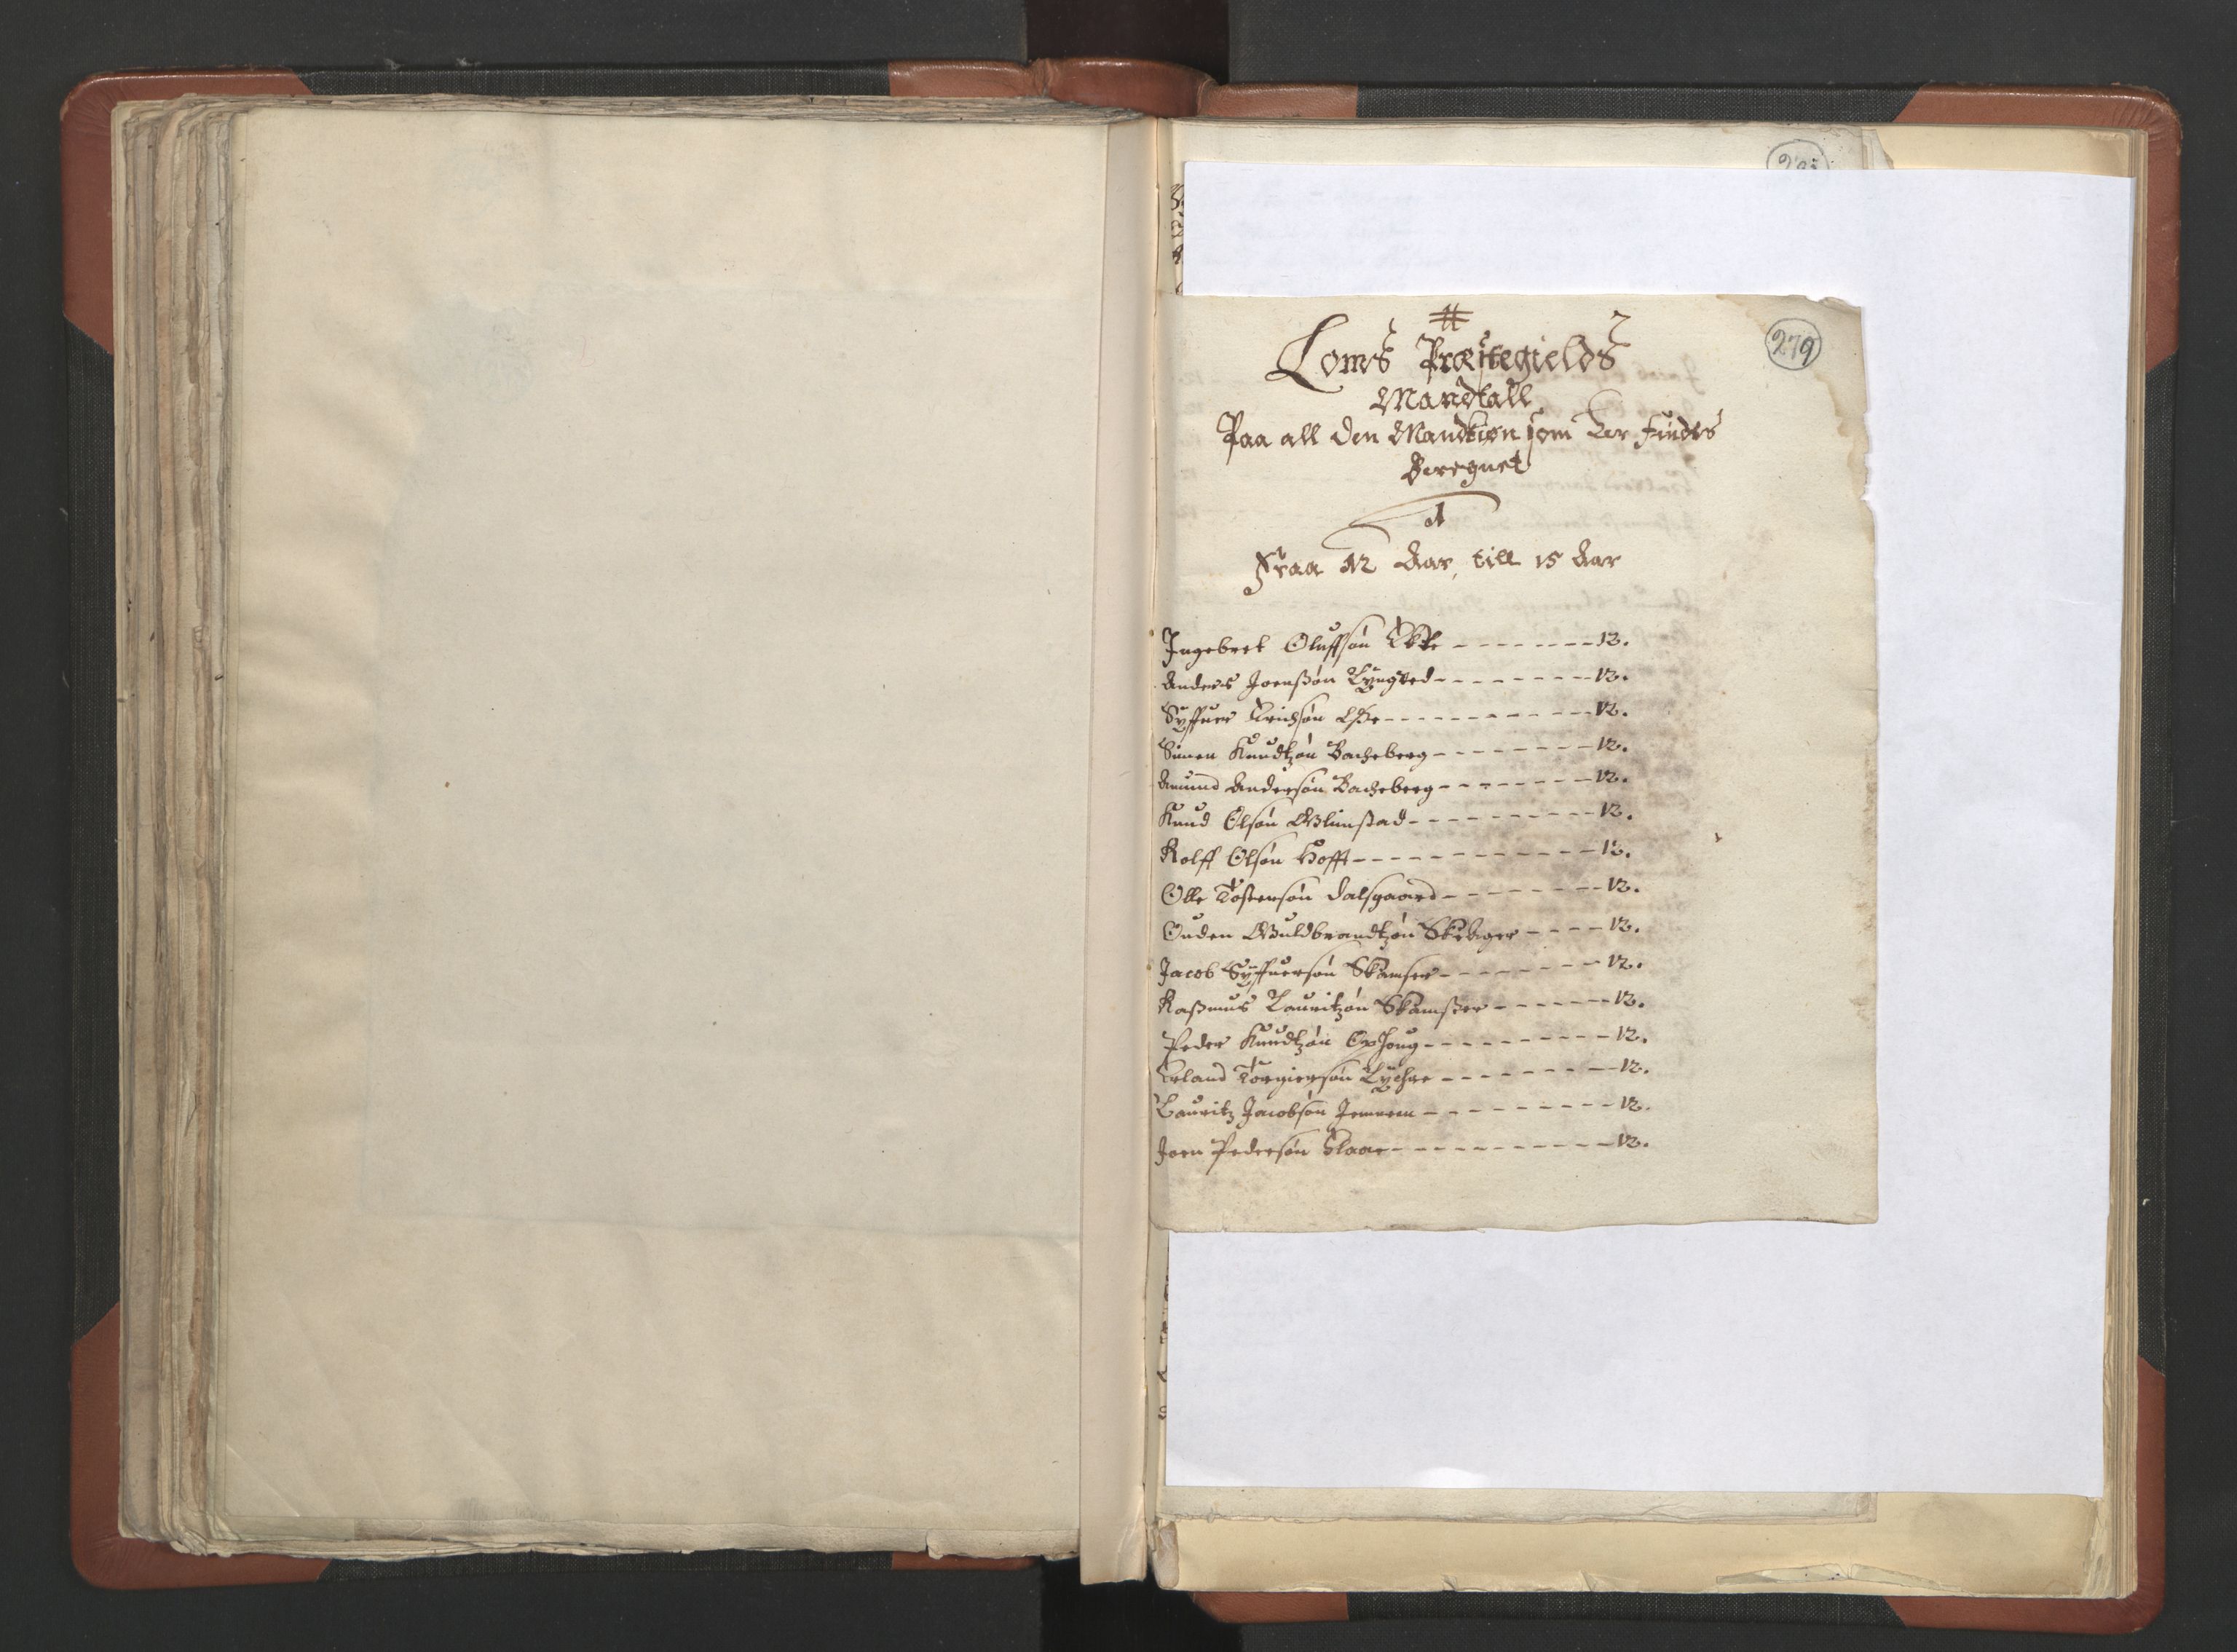 279
#
Loms Præstegields
Mandtall
Paa all den Mandkiøn som der findes
Beregnet
A
Fraa 12 Aar, till 15 Aar
Ingebret Oluffsøn - - - - - - - - 12.
Anders Joenßøn - - - - - - - - 12.
Syffuer Erichsøn - - - - - - - - - - - 12.
Simen Knudtzøn Bacheberg - - - - - - - - 12.
Amund Andersøn Bacheberg - - - - - - - - 12.
Knud Olsøn Glimstad - - - - - - - - - - 12.
Rolff Olsøn Hofft - - - - - - - - - - - - 12.
Olle Tostensøn Dalsgaard - - - - - - - - 12.
Ouden Guldbrandtzøn - - - - 12.
Jacob Syffuersøn Skamser - - - - - - - 12.
Raßmus Lauritzøn Skamster - - - - - - 12.
Peder Knudtzøn Ophoug - - - - - - - - - - 12.
Erland Torgiersøn Lychre - - - - - - - - 12.
Lauritz Jacobsøn - - - - - - - - - 12.
Joen Pedersøn Slaae - - - - - - - - - - - 12.